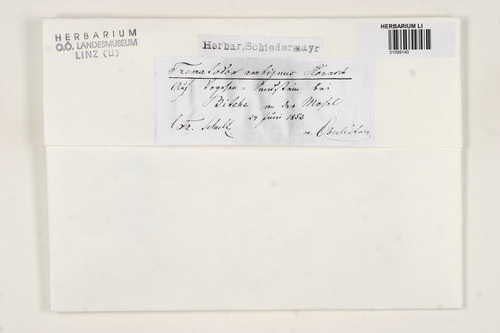 HERBARIUM
O.Ö. LANDESMUSEUM
LINZ (LI)
Herbar. Schiedermayr
HERBARIUM LI
01099140
Trematodon ambiguus Hornsch
Auf Vogesen-Sandstein bei
Bitche an der Mosel
24 Juni 1852
Fr. Schultz